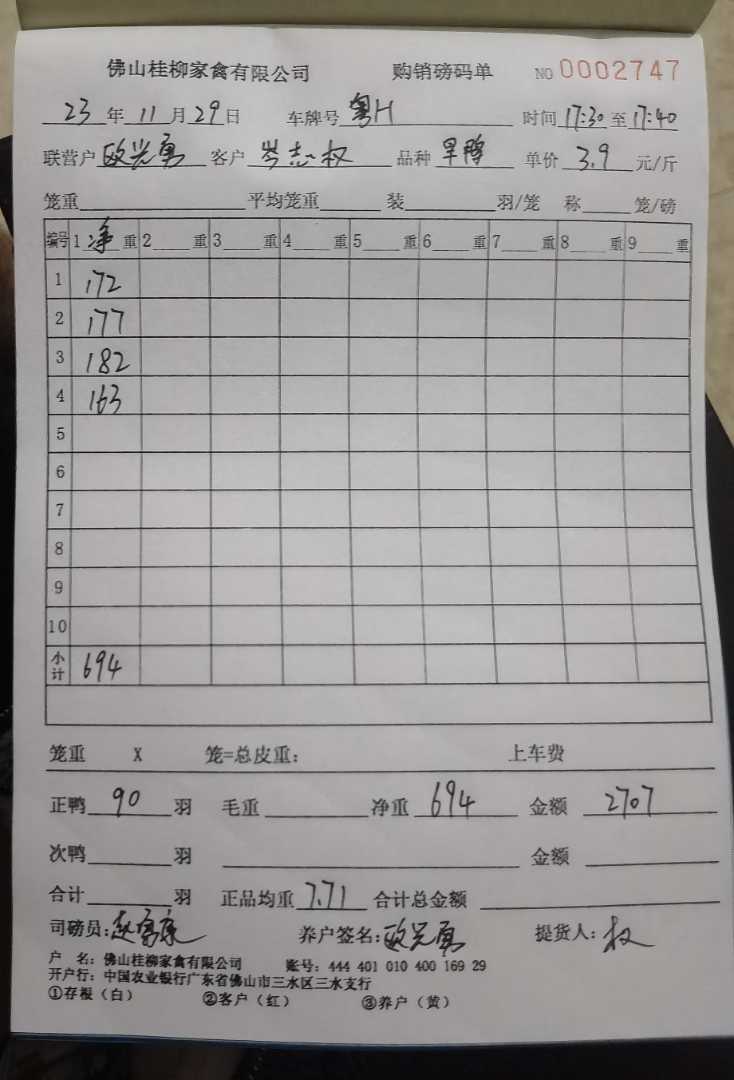 佛山桂柳家禽有限公司 购销磅码单 NO 0002747
23年 11月29日 车牌号 粤H 时间 17:30 至 17:40
联营户 欧兴勇 客户 岑志权 品种 单价 3.9 元/斤
笼重 平均笼重 装 羽/笼 称 笼/磅
编号 1 净 重 2 重 3 重 4 重 5 重 6 重 7 重 8 重 9 重
1 172
2 177
3 182
4 163
5
6
7
8
9
10
小计 694
笼重 X 笼=总皮重: 上车费
正鸭 90 羽 毛重 净重 694 金额 2707
次鸭 羽 金额
合计 羽 正品均重 7.71 合计总金额
司磅员: 赵富康 养户签名: 欧兴勇 提货人: 权
户 名: 佛山桂柳家禽有限公司 账号: 444 401 010 400 169 29
开户行: 中国农业银行广东省佛山市三水区三水支行
①存根(白) ②客户(红) ③养户(黄)